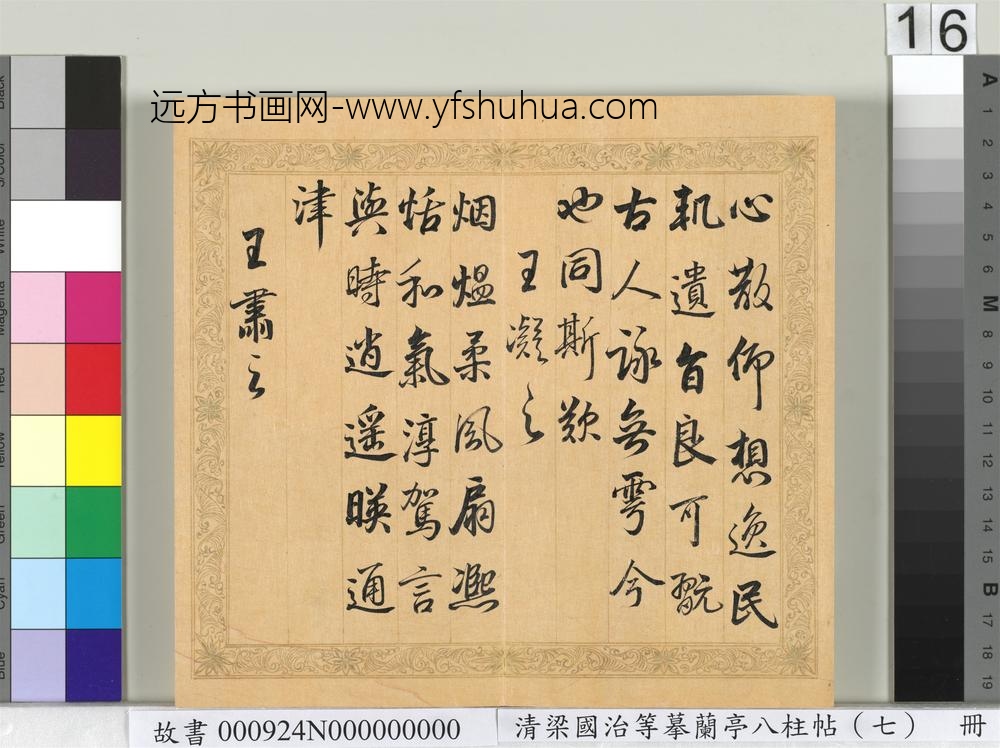 16
远方书画网-www.yfshuhua.com
心散仰想逸民
軌遺音良可翫
古人詠舞雩今
也同斯歎
王凝之
烟熅柔風扇熈
恬和氣淳駕言
與時逍遥暎通
津
王肅之
Black
3/Color
White
Magenta
Red
Yellow
Green
Cyan
Blue
A
1
2
3
4
5
6
M
8
9
10
11
12
13
14
15
B
17
18
19
故書 000924N000000000
清梁國治等摹蘭亭八柱帖（七） 冊